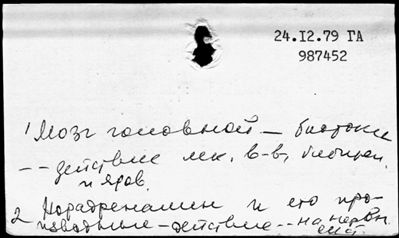 24.I2.79 ГА
987452
1 Мозг головной – биотоки
-- – действие лек. в-в,
и ядов.
2 Норадреналин и его про-
изводные – действие -- на нервн.
сист.